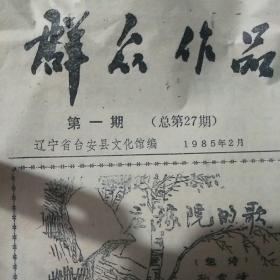 群众作品
第一期 （总第27期）
辽宁省台安县文化馆编 1985年2月
院的歌